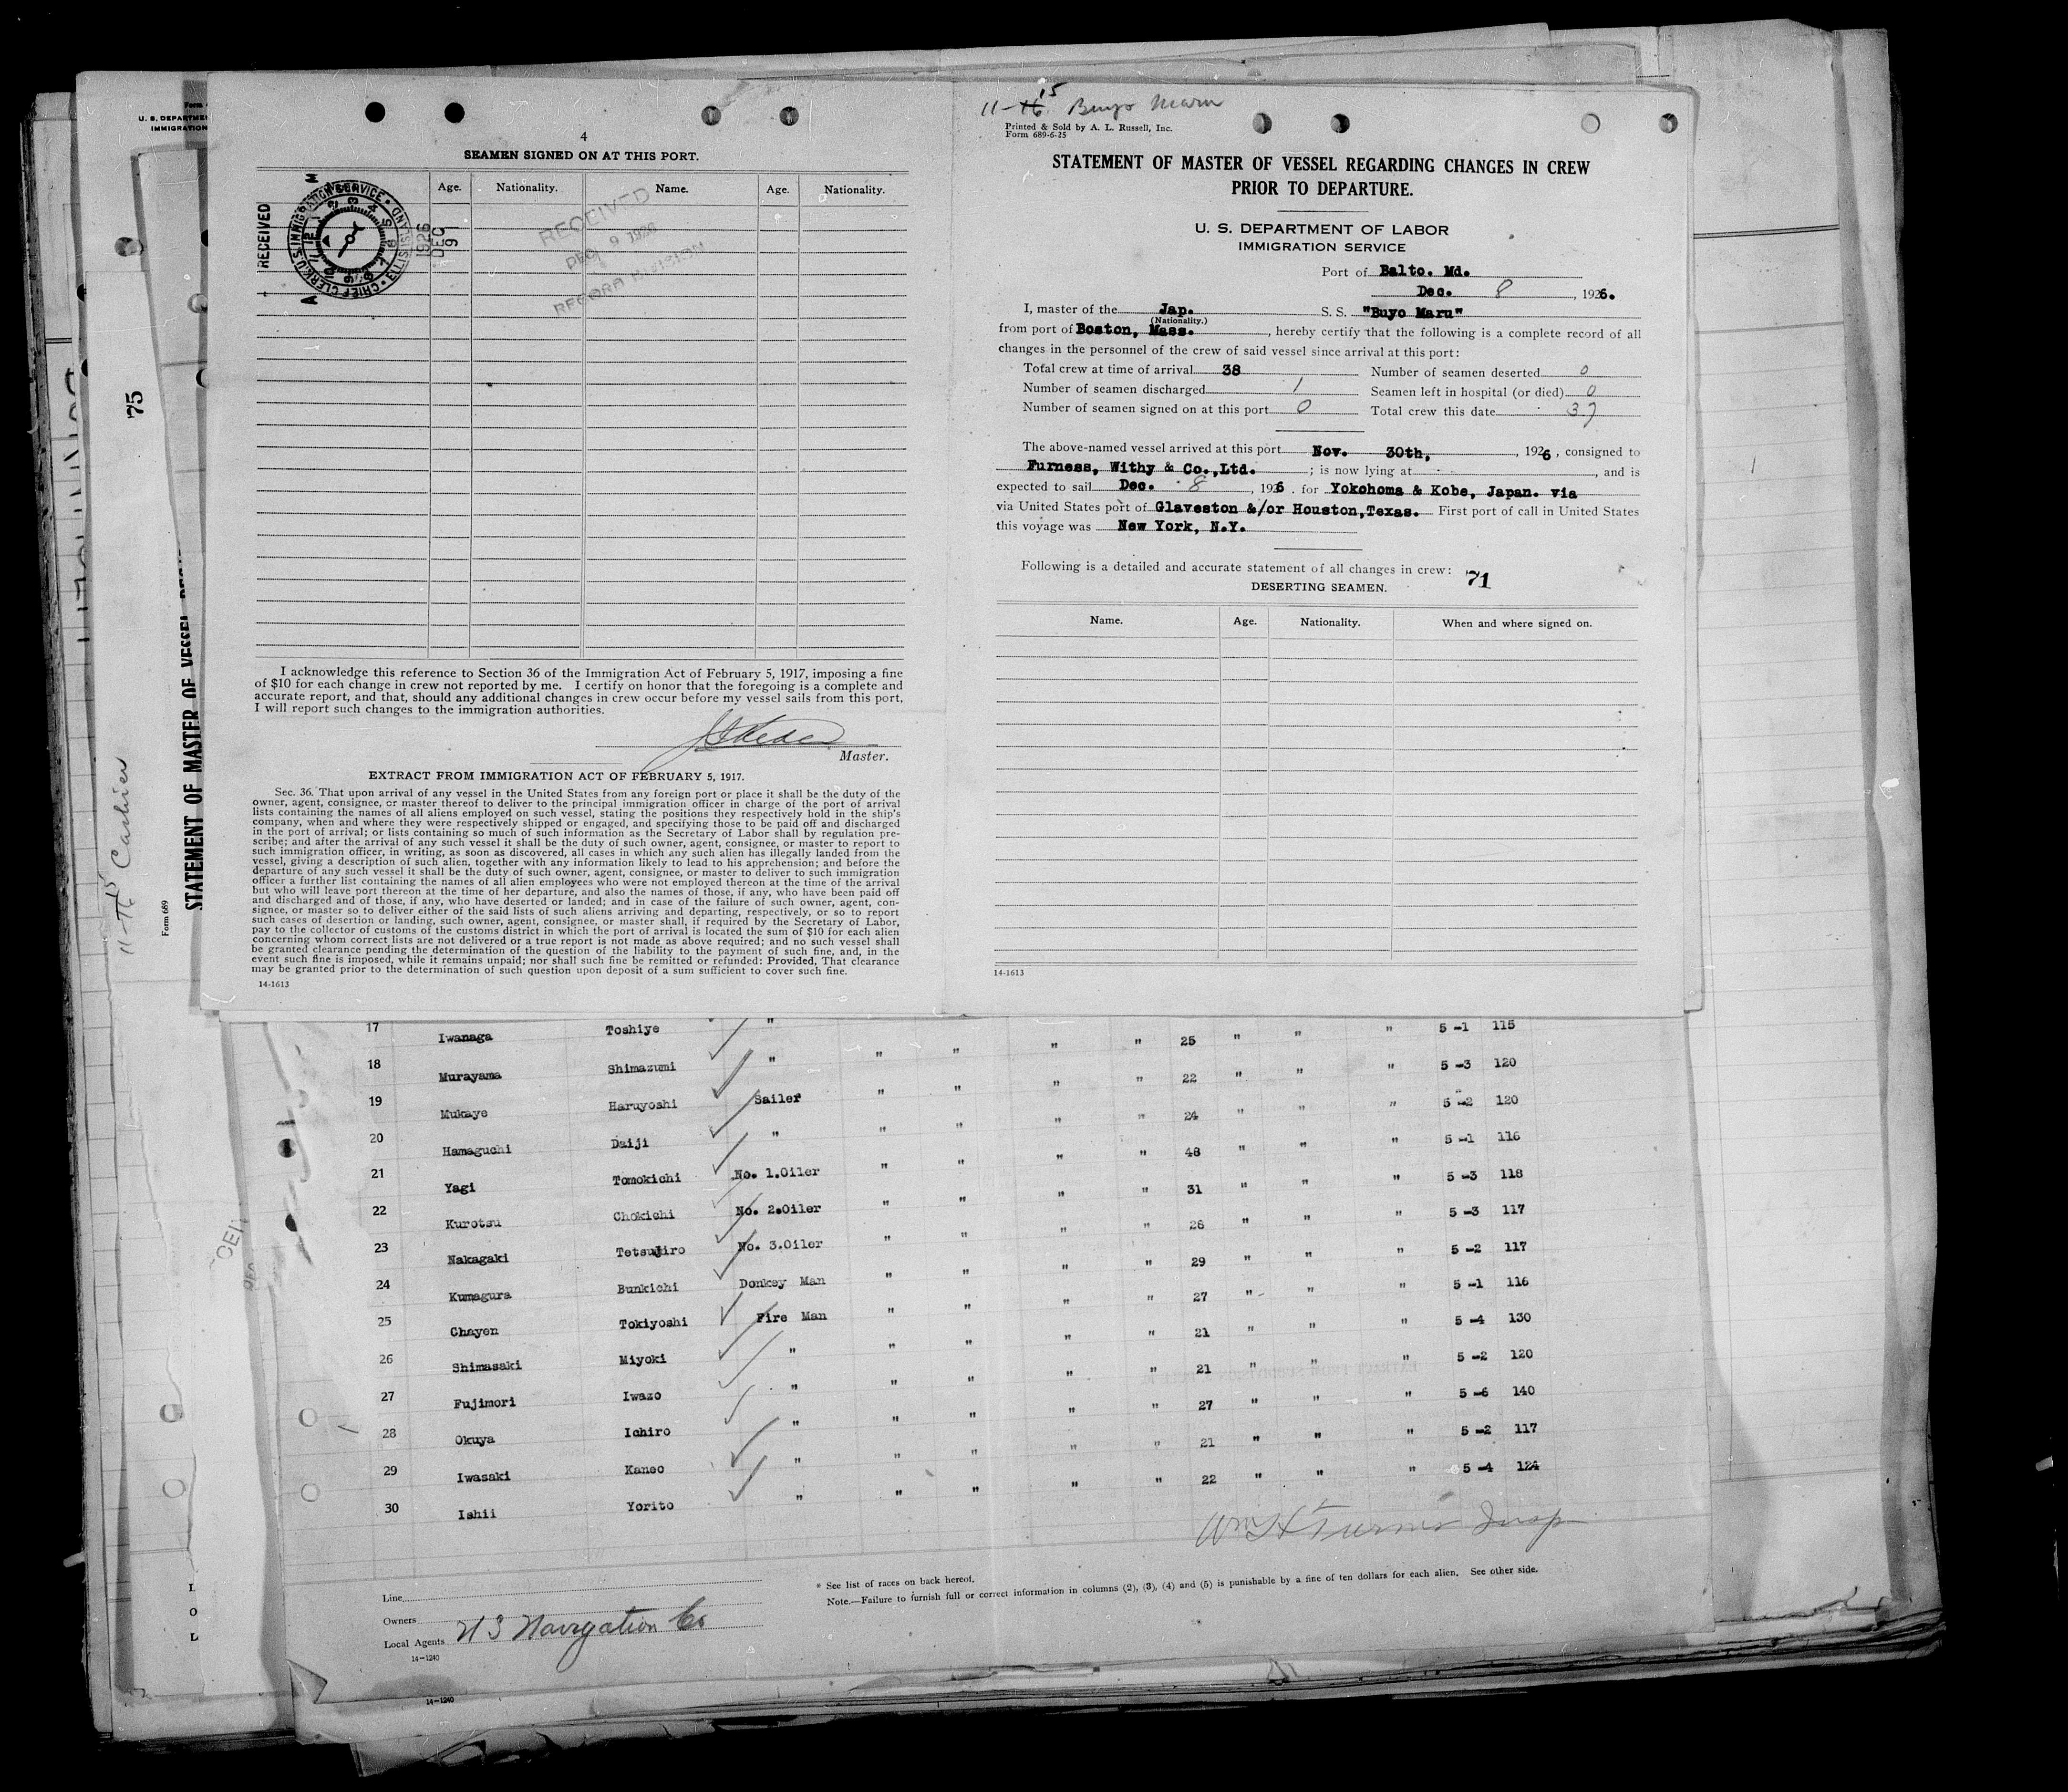 4
SEAMEN SIGNED ON AT THIS PORT.
Age. Nationality. Name. Age. Nationality.
RECEIVED
CHIEF CLERK U.S. IMMIGRATION SERVICE
1926
DEC
9
RECEIVED
DEC 9 1926
RECORD DIVISION
I acknowledge this reference to Section 36 of the Immigration Act of February 5, 1917, imposing a fine
of $10 for each change in crew not reported by me. I certify on honor that the foregoing is a complete and
accurate report, and that, should any additional changes in crew occur before my vessel sails from this port,
I will report such changes to the immigration authorities.
Master.
EXTRACT FROM IMMIGRATION ACT OF FEBRUARY 5, 1917.
Sec. 36. That upon arrival of any vessel in the United States from any foreign port or place it shall be the duty of the
owner, agent, consignee, or master thereof to deliver to the principal immigration officer in charge of the port of arrival
lists containing the names of all aliens employed on such vessel, stating the positions they respectively hold in the ship's
company, when and where they were respectively shipped or engaged, and specifying those to be paid off and discharged
in the port of arrival; or lists containing so much of such information as the Secretary of Labor shall by regulation pre-
scribe; and after the arrival of any such vessel it shall be the duty of such owner, agent, consignee, or master to report to
such immigration officer, in writing, as soon as discovered, all cases in which any such alien has illegally landed from the
vessel, giving a description of such alien, together with any information likely to lead to his apprehension; and before the
departure of any such vessel it shall be the duty of such owner, agent, consignee, or master to deliver to such immigration
officer a further list containing the names of all alien employees who were not employed thereon at the time of the arrival
but who will leave port thereon at the time of her departure, and also the names of those, if any, who have been paid off
and discharged and of those, if any, who have deserted or landed; and in case of the failure of such owner, agent, con-
signee, or master so to deliver either of the said lists of such aliens arriving and departing, respectively, or so to report
such cases of desertion or landing, such owner, agent, consignee, or master shall, if required by the Secretary of Labor,
pay to the collector of customs of the customs district in which the port of arrival is located the sum of $10 for each alien
concerning whom correct lists are not delivered or a true report is not made as above required; and no such vessel shall
be granted clearance pending the determination of the question of the liability to the payment of such fine, and, in the
event such fine is imposed, while it remains unpaid; nor shall such fine be remitted or refunded: Provided, That clearance
may be granted prior to the determination of such question upon deposit of a sum sufficient to cover such fine.
14-1613
11-16 15 Buyo Maru
Printed & Sold by A. L. Russell, Inc.
Form 689-6-25
STATEMENT OF MASTER OF VESSEL REGARDING CHANGES IN CREW
PRIOR TO DEPARTURE.
U. S. DEPARTMENT OF LABOR
IMMIGRATION SERVICE
Port of Balto. Md.
Dec. 8, 1926.
I, master of the Jap. S. S. "Buyo Maru"
(Nationality.)
from port of Boston, Mass., hereby certify that the following is a complete record of all
changes in the personnel of the crew of said vessel since arrival at this port:
Total crew at time of arrival 38 Number of seamen deserted 0
Number of seamen discharged 1 Seamen left in hospital (or died) 0
Number of seamen signed on at this port 0 Total crew this date 37
The above-named vessel arrived at this port Nov. 30th, 1926, consigned to
Furness, Withy & Co., Ltd.; is now lying at , and is
expected to sail Dec. 8, 1926. for Yokohoma & Kobe, Japan. via
via United States port of Glaveston &/or Houston, Texas. First port of call in United States
this voyage was New York, N.Y.
Following is a detailed and accurate statement of all changes in crew: 71
DESERTING SEAMEN.
Name. Age. Nationality. When and where signed on.
14-1613
U. S. DEPARTME
IMMIGRATION
75
STATEMENT OF MASTER OF VESSEL
Form 689
17 Iwanaga Toshiye " " " " " 25 " " " 5 -1 115
18 Murayama Shimazumi " " " " " 22 " " " 5 -3 120
19 Mukaye Haruyoshi Sailer " " " " 24 " " " 5 -2 120
20 Hamaguchi Daiji " " " " " 48 " " " 5 -1 116
21 Yagi Tomokichi No. 1.Oiler " " " " 31 " " " 5 -3 118
22 Kurotsu Chokichi No. 2.Oiler " " " " 26 " " " 5 -3 117
23 Nakagaki Tetsujiro No. 3.Oiler " " " " 29 " " " 5 -2 117
24 Kumagura Bunkichi Donkey Man " " " " 27 " " " 5 -1 116
25 Chayen Tokiyoshi Fire Man " " " " 21 " " " 5 -4 130
26 Shimasaki Miyoki " " " " " 21 " " " 5 -2 120
27 Fujimori Iwazo " " " " " 27 " " " 5 -6 140
28 Okuya Ichiro " " " " " 21 " " " 5 -2 117
29 Iwasaki Kaneo " " " " " 22 " " " 5 -4 124
30 Ishii Yorito " " " " "
Wm H Turner Insp
Line
Owners
Local Agents U S Navigation Co
14-1240
* See list of races on back hereof.
Note.—Failure to furnish full or correct information in columns (2), (3), (4) and (5) is punishable by a fine of ten dollars for each alien. See other side.
14-1240